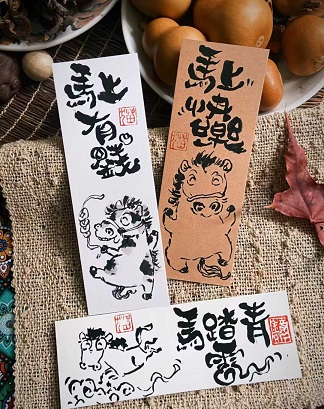 馬上
有
錢
馬上
快
樂
馬踏青
雲